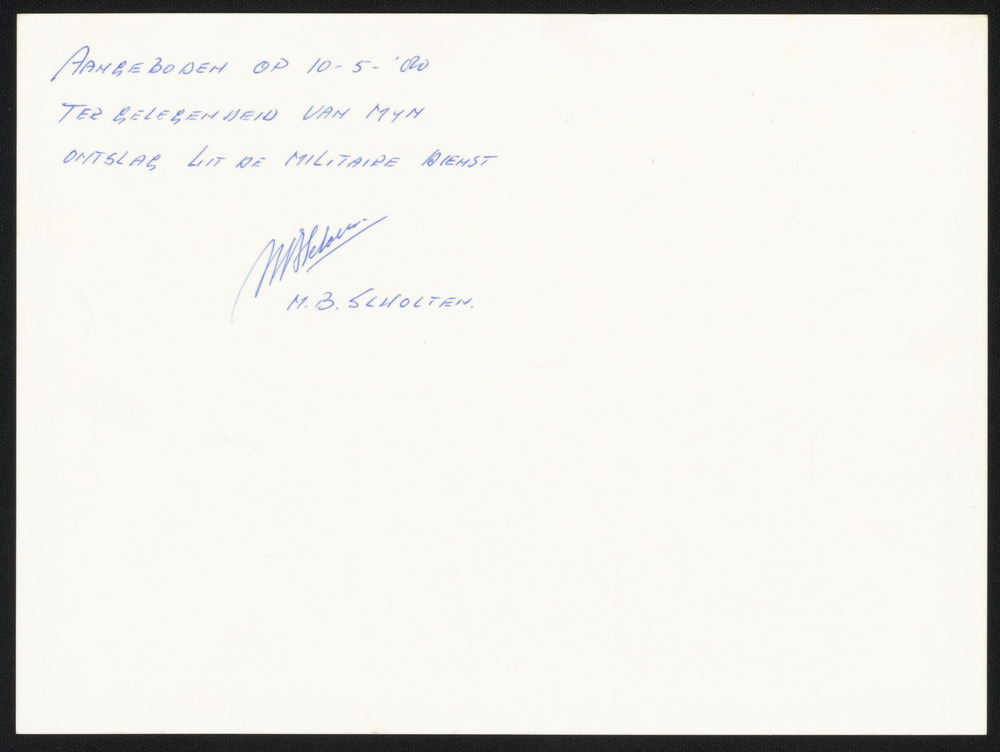 AANGEBODEN OP 10-5-'80
TER GELEGENHEID VAN MYN
ONTSLAG UIT DE MILITAIRE DIENST
MBScholten
M.B. SCHOLTEN.